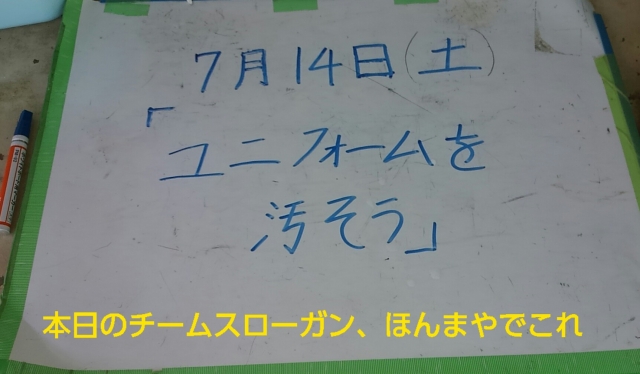 7月14日(土)
「ユニフォームを
汚そう」
本日のチームスローガン、ほんまやでこれ